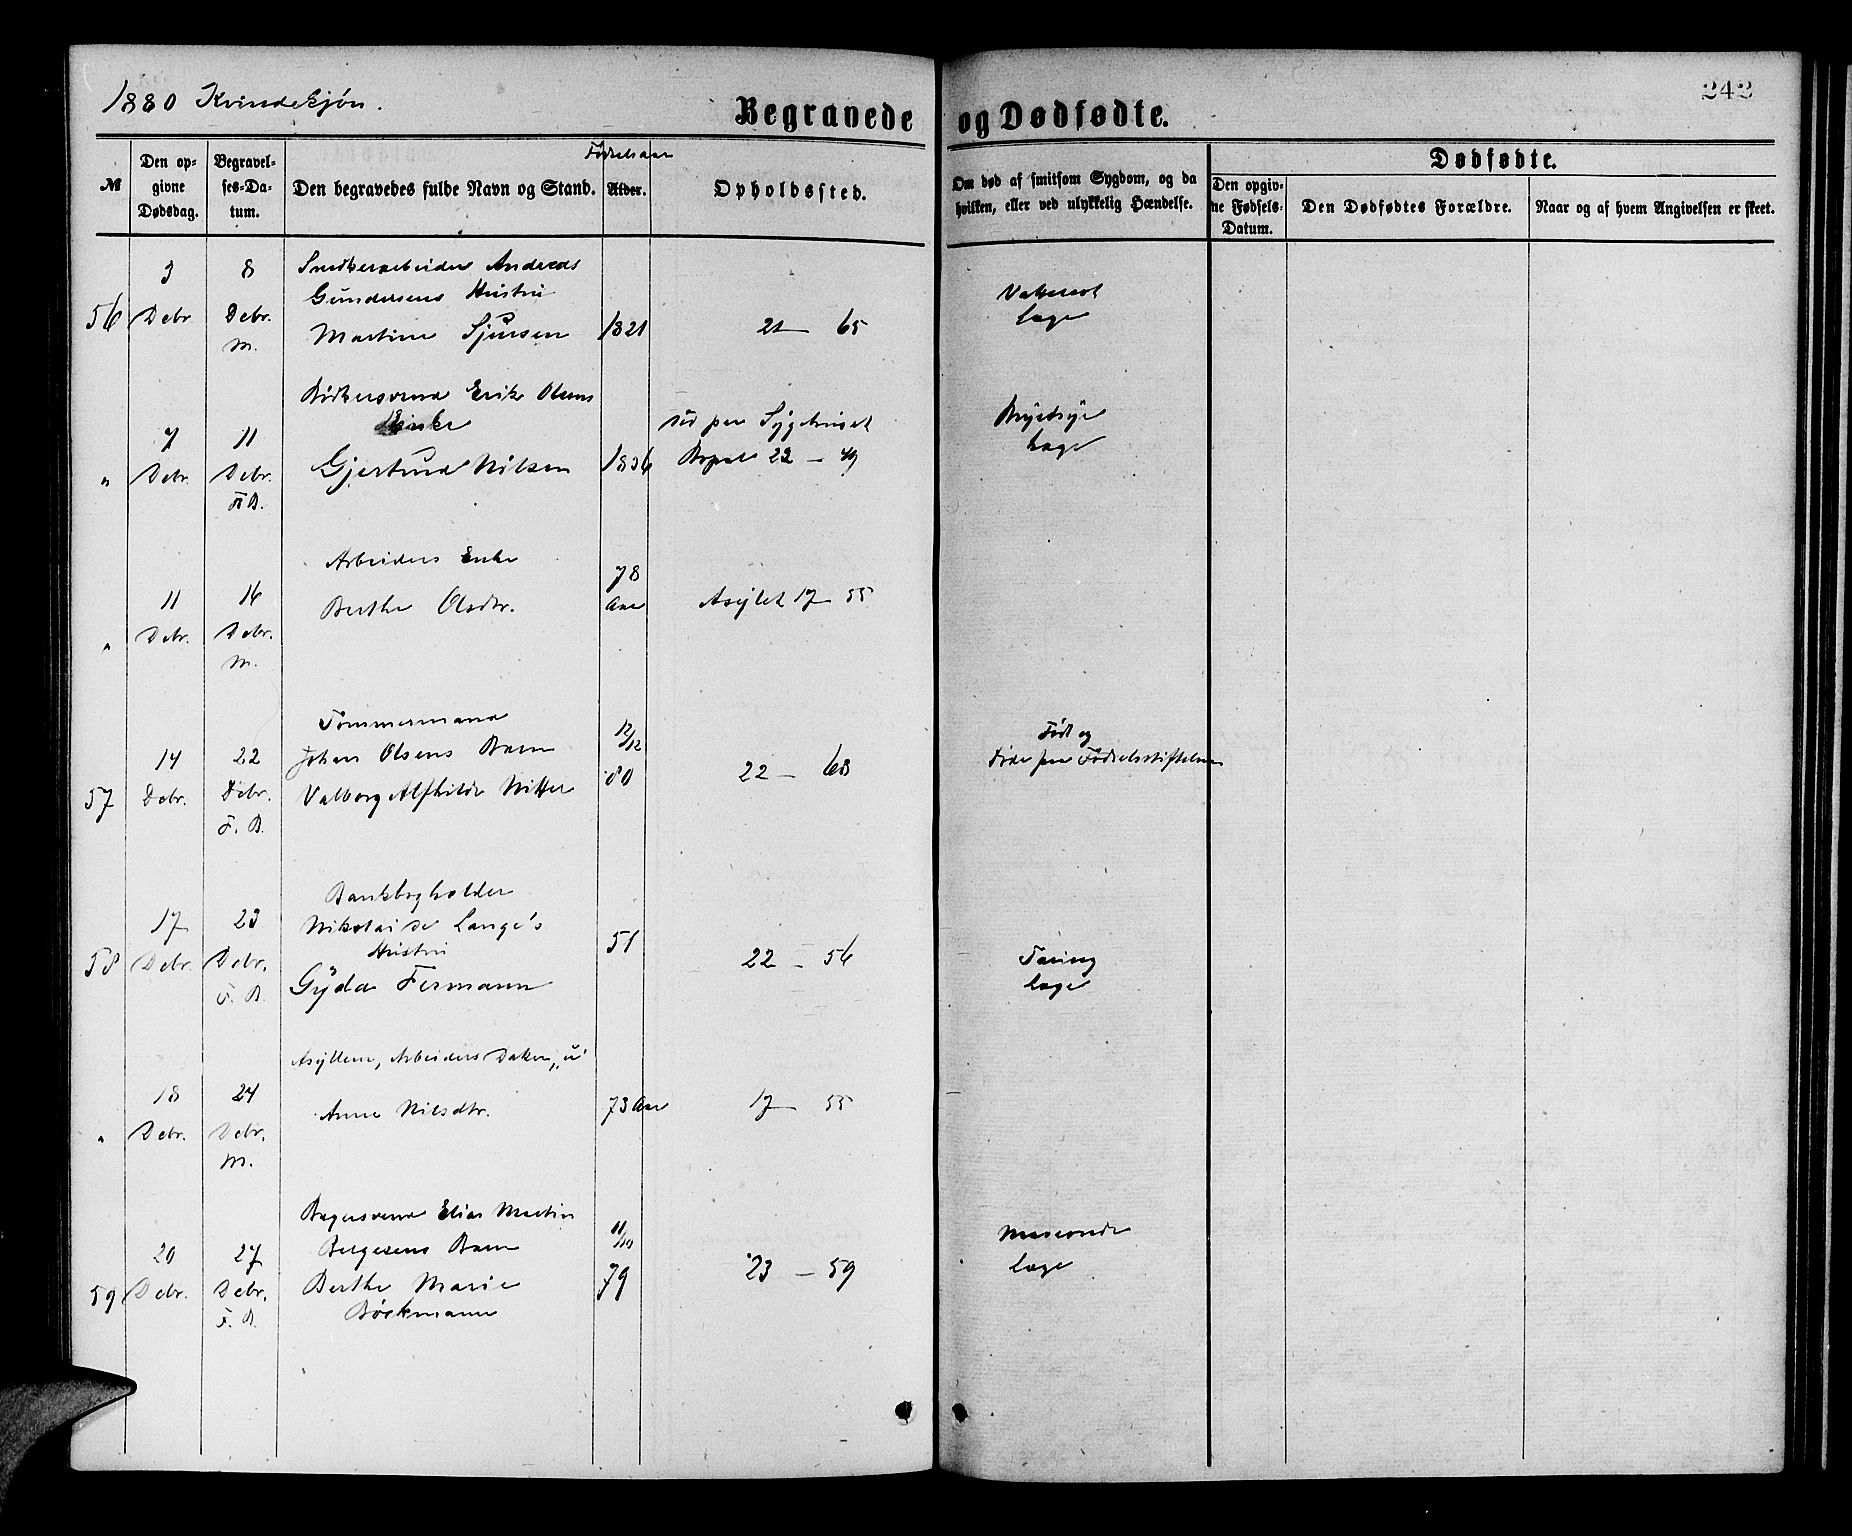 1880 Kvindekjøn.
Begravede og Dødfødte.
242
№
Den op-
givne
Dødsdag.
Begravel-
ses-Da-
tum.
Den begravedes fulde Navn og Stand.
Fødselsaar
Alder.
Opholdssted.
Om død af smitsom Sygdom, og da
hvilken, eller ved ulykkelig Hændelse.
Dødfødte.
Den opgiv-
ne Fødsels-
Datum.
Den Dødfødtes Forældre.
Naar og af hvem Angivelsen er skeet.
56
3
Debr
8
Debr.
M.
Snedkerarbeider Andreas
Gundersens Hustru
Martine Sjursen
1821
21 – 65
Læge
"
7
Debr.
11
Debr.
F B.
Bødkersvend Erik Olsens
Enke
Gjertrud Nilsen
1836
død paa Sygehuset
Bopæl 22 – 49
Brystsyge
Læge
"
11
Debr.
16
Debr.
M.
Arbeiders Enke
Berthe Olsdtr.
78
Aar
Asylet 17 – 55
57
14
Debr.
22
Debr.
F. B.
Tømmermand
Johan Olsens Barn
Valborg Alfhilde Nitter
12/12
80
22 – 68
Født og
døde paa Fødselsstiftelsen
58
17
Debr.
23
Debr.
F. B.
Bankbogholder
Nikolai de Lange's
Hustru
Gyda Fermann
51
22 – 56
Tæring
Læge
"
18
Debr.
24
Debr.
M.
Asyllem, Arbeiders Datter,
Anne Nilsdtr.
73 Aar
17 – 55
59
20
Debr.
27
Debr.
F. B.
Bagersvend Elias Martin
Børgesens Barn
Berthe Marie
Böckmann
11/10
79
23 – 59
Læge